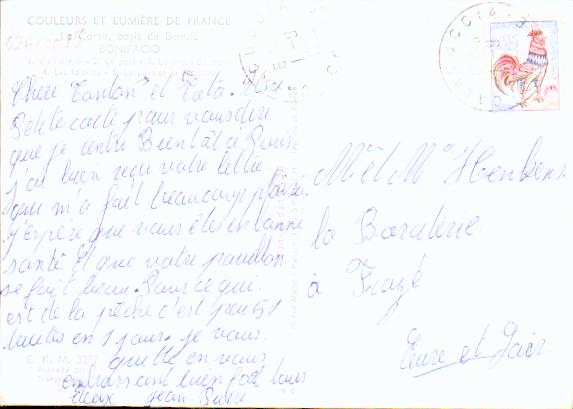 COULEURS ET LUMIÈRE DE FRANCE
La Corse, oasis de Beauté
BONIFACIO
Chere Tonton et Tata. Une
Petite carte pour vous dire
que je rentre Bientât à Paris
j'ai bien reçu votre lettre
qui m'a fait beaucoup plaisir
j'Espère que vous êtes en bonne
santé. Et que votre pavillon
se fait beau. Pour ce qui
est de la pêche c'est peu 51
truites en 1 jour. je vous
quitte en vous
embrassant bien fort tous
deux Jean Pierre
Mr et Mme Henkens
la Baraterie
à Frazé
Eure et Loir